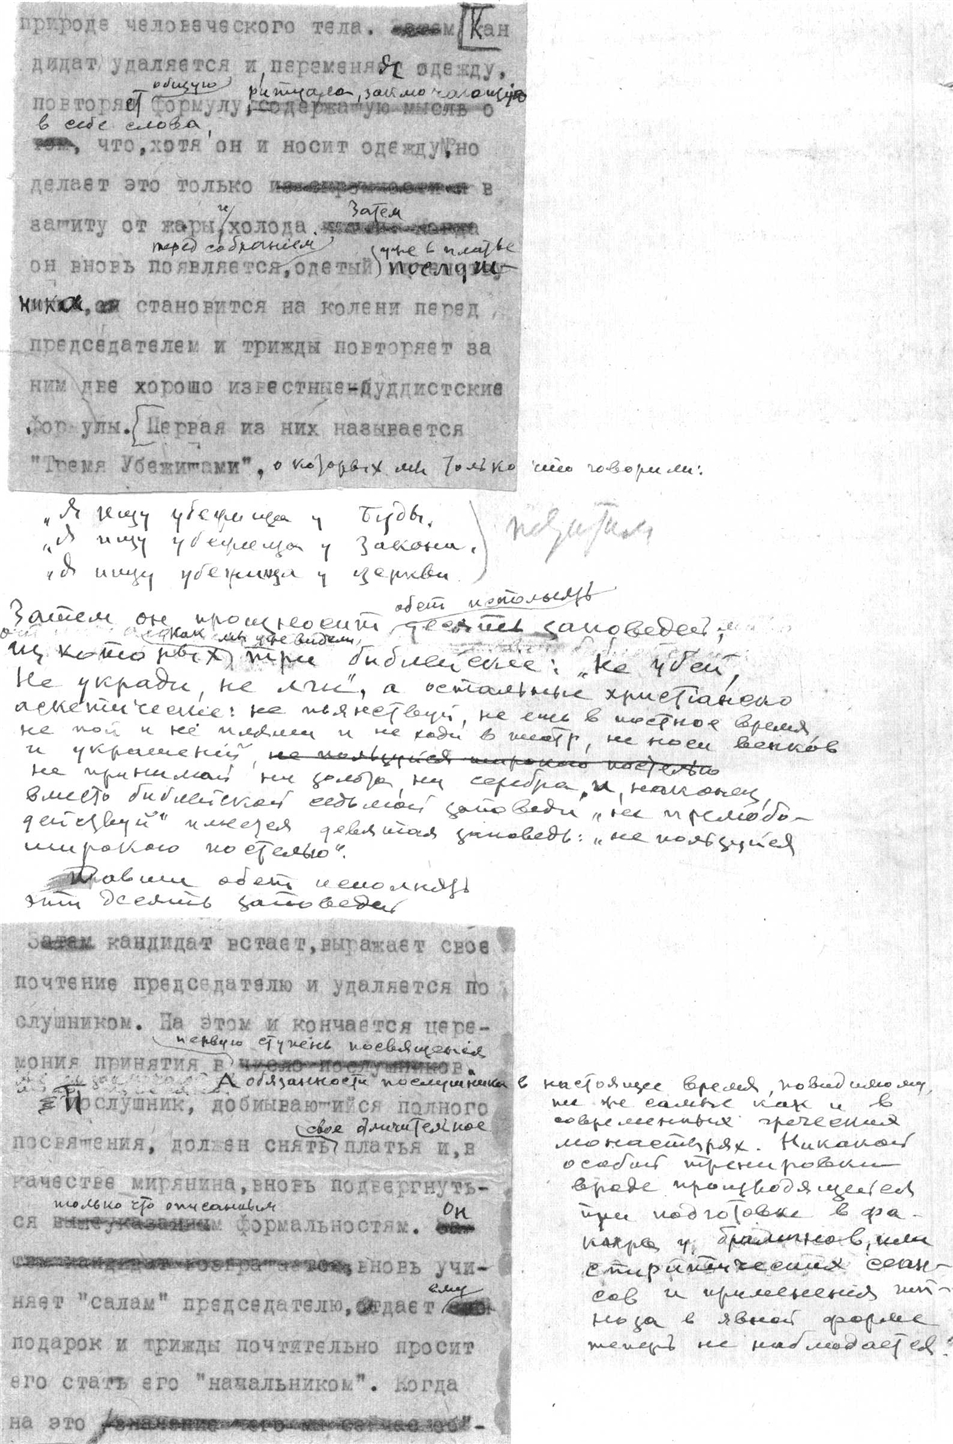 природе человеческого тела. Кан
дидат удаляется и, переменяя одежду,
общую ритуала, заключающую
повторяет формулу, содержащую мысль о
в себе слова,
что, хотя он и носит одежду, но
делает это только в
защиту от жары и холода. Затем
перед собранием уже в платье
он вновь появляется, одетый послуш-
ника, становится на колени перед
председателем и трижды повторяет за
ним две хорошо известные буддистские
формулы. [Первая из них называется
"Тремя Убежищами", о которых мы только что говорили:
„Я ищу убежища у Будды.
„Я ищу убежища у Закона.
„Я ищу убежища у церкви.
Затем он произносит обет исполнять десять заповедей,
из которых, как мы уже видели, три библейские: „Не убей,
Не укради, не лги", а остальные христианско
аскетические: не пьянствуй, не ешь в постное время,
не пой и не пляши и не ходи в театр, не носи венков
и украшений, не пользуйся широкою постелью
не принимай ни золота, ни серебра, и, наконец,
вместо библейской седьмой заповеди „не прелюбо-
действуй" имеется девятая заповедь: „не пользуйся
широкою постелью".
Давши обет исполнять
эти десять заповедей
Затем кандидат встает, выражает свое
почтение председателю и удаляется по
слушником. На этом и кончается цере-
первую ступень посвящения
мония принятия в число послушников.
А обязанности послушника в настоящее время, повидимому,
те же самые как и в
современных греческих
монастырях. Никакой
особой тренировки
вроде производящейся
при подготовке в фа-
киры у браминов, или
спиритических сеан-
сов и применения гип-
ноза в явной форме
теперь не наблюдается.
Послушник, добивающийся полного
свое отличительное
посвящения, должен снять платья и, в
качестве мирянина, вновь подвергнуть-
только что описанным Он
ся вышеуказанным формальностям.
вновь учи-
ему
няет "салам" председателю, отдает
подарок и трижды почтительно просит
его стать его "начальником". Когда
на это